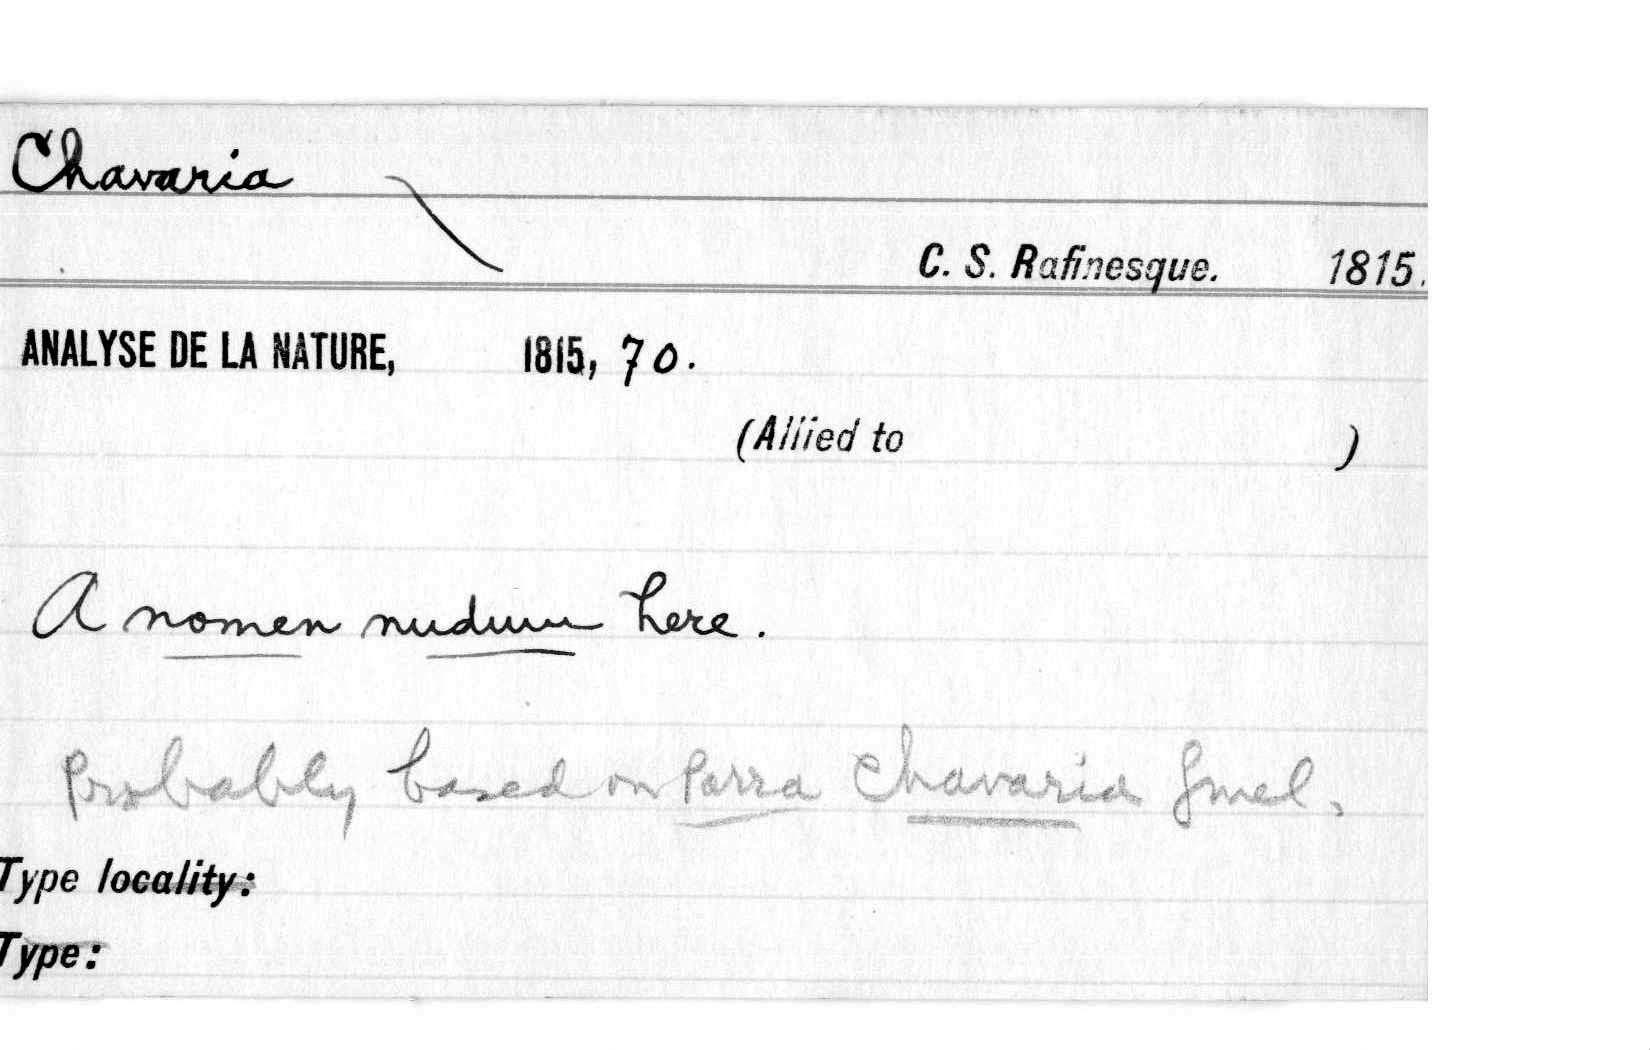 Chavaria
C. S. Rafinesque. 1815.
ANALYSE DE LA NATURE, 1815, 70.
(Allied to )
A nomen nudum here.
Probably based on Parra Chavaria Gmel.
Type locality:
Type: